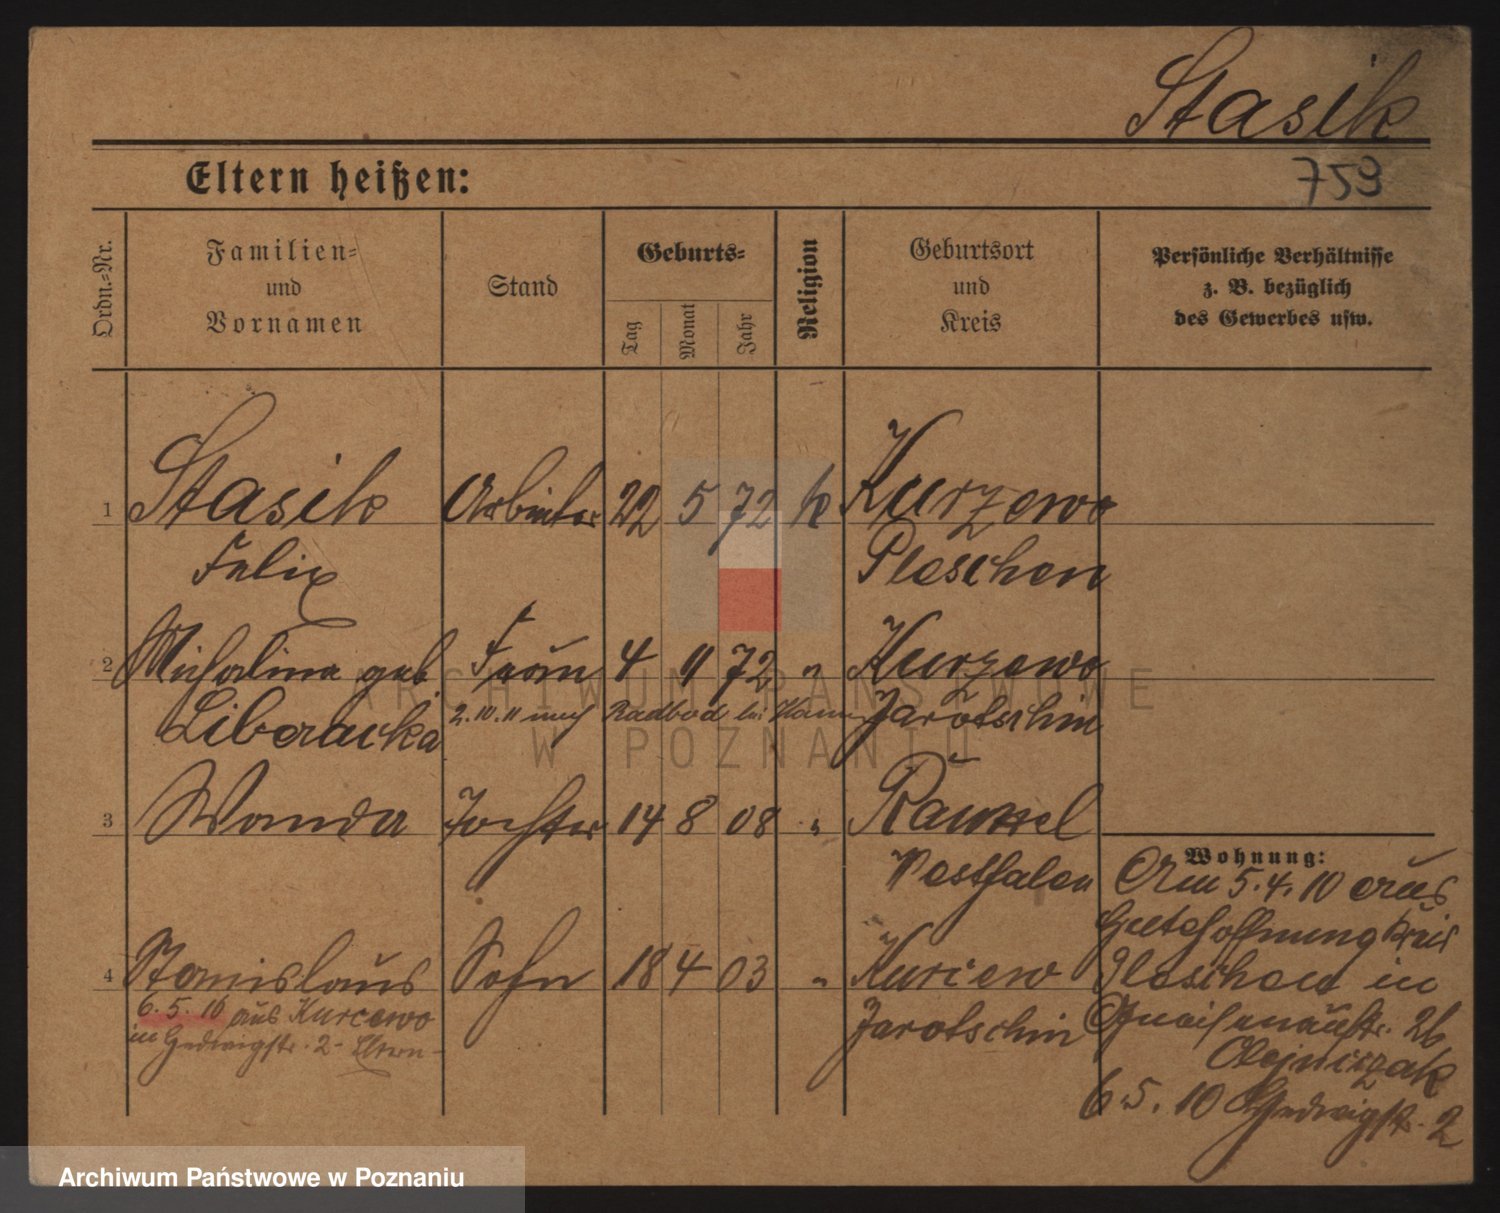 Stasik
Eltern heißen:
759
Ordn.-Nr.
Familien-
und
Vornamen
Stand
Geburts-
Tag
Monat
Jahr
Religion
Geburtsort
und
Kreis
Persönliche Verhältnisse
z. B. bezüglich
des Gewerbes usw.
1 Stasik Arbeiter 22 5 72 k Kurzewo
Felix Pleschen
2 Michalina geb. Frau 4 11 72 " Kurzewo
Liberacka 2.10.11 nach Radbod bei Hamm Jarotschin
3 Wanda Tochter 14 8 08 " Rauxel
Westfalen
4 Stanislaus Sohn 18 4 03 " Kurcew
Jarotschin
6. 5. 10 aus Kurcewo
in Hedwigstr. 2 - Eltern -
Wohnung:
Am 5.4.10 aus
Gutehoffnung Kreis
Pleschen in
Gneisenaustr. 26
Olejniczak
6.5.10 Hedwigstr. 2
ARCHIWUM PAŃSTWOWE
W POZNANIU
Archiwum Państwowe w Poznaniu